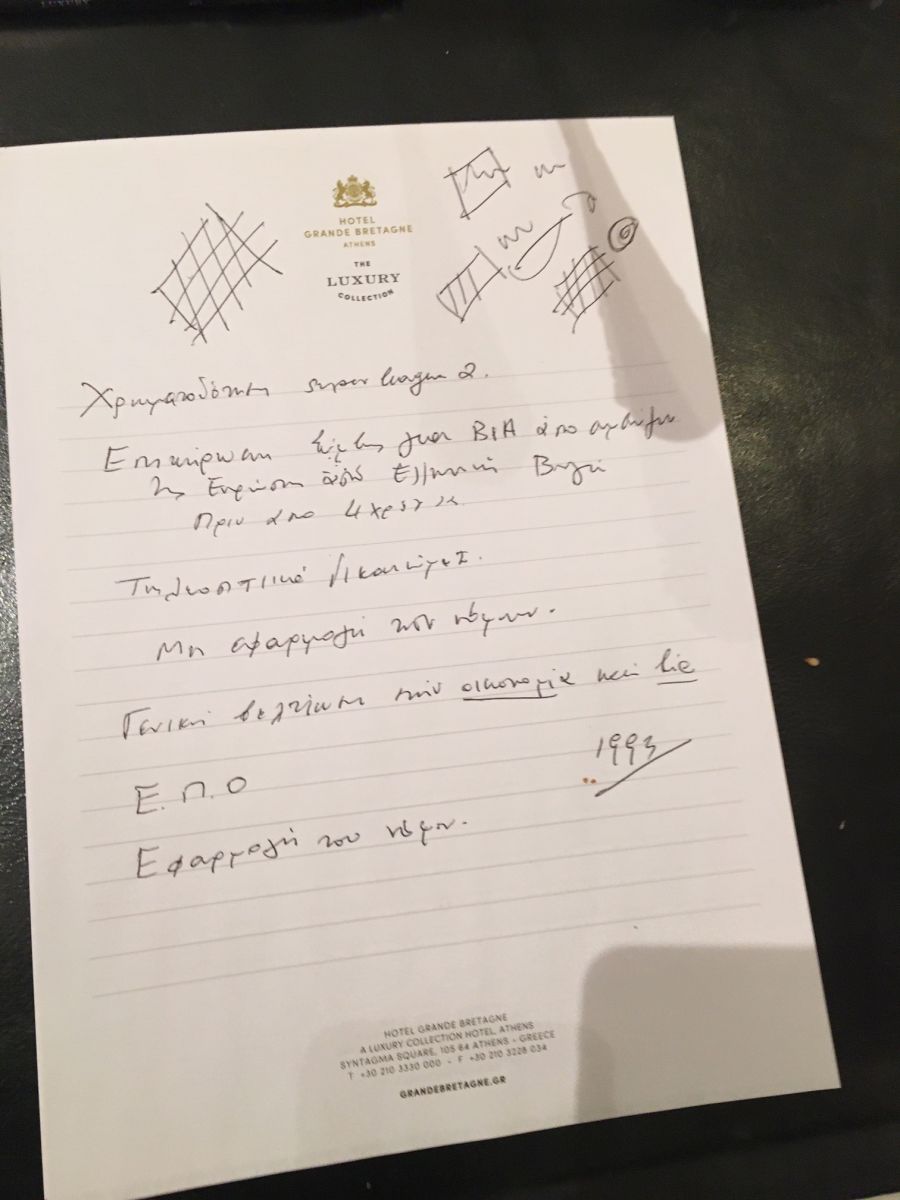 HOTEL
GRANDE BRETAGNE
ATHENS
THE
LUXURY
COLLECTION
Χρηματοδότηση super league 2.
Επικύρωση για ΒΙΑ από
της Ελληνική Βουλή
Πριν από 4
Τηλεοπτικά δικαιώματα.
Μη εφαρμογή των νόμων.
Γενική βελτίωση στην οικονομία και
1993
Ε.Π.Ο
Εφαρμογή του νόμου.
HOTEL GRANDE BRETAGNE
A LUXURY COLLECTION HOTEL, ATHENS
SYNTAGMA SQUARE, 105 64 ATHENS - GREECE
T +30 210 3330 000 - F +30 210 3228 034
GRANDEBRETAGNE.GR